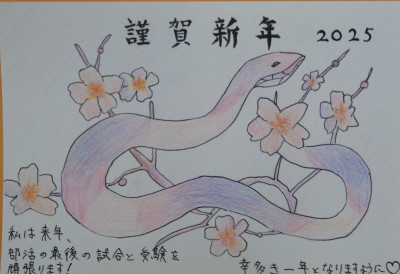 謹賀新年 2025
私は来年、
部活の最後の試合と受験を
頑張ります!
幸多き一年となりますように♡